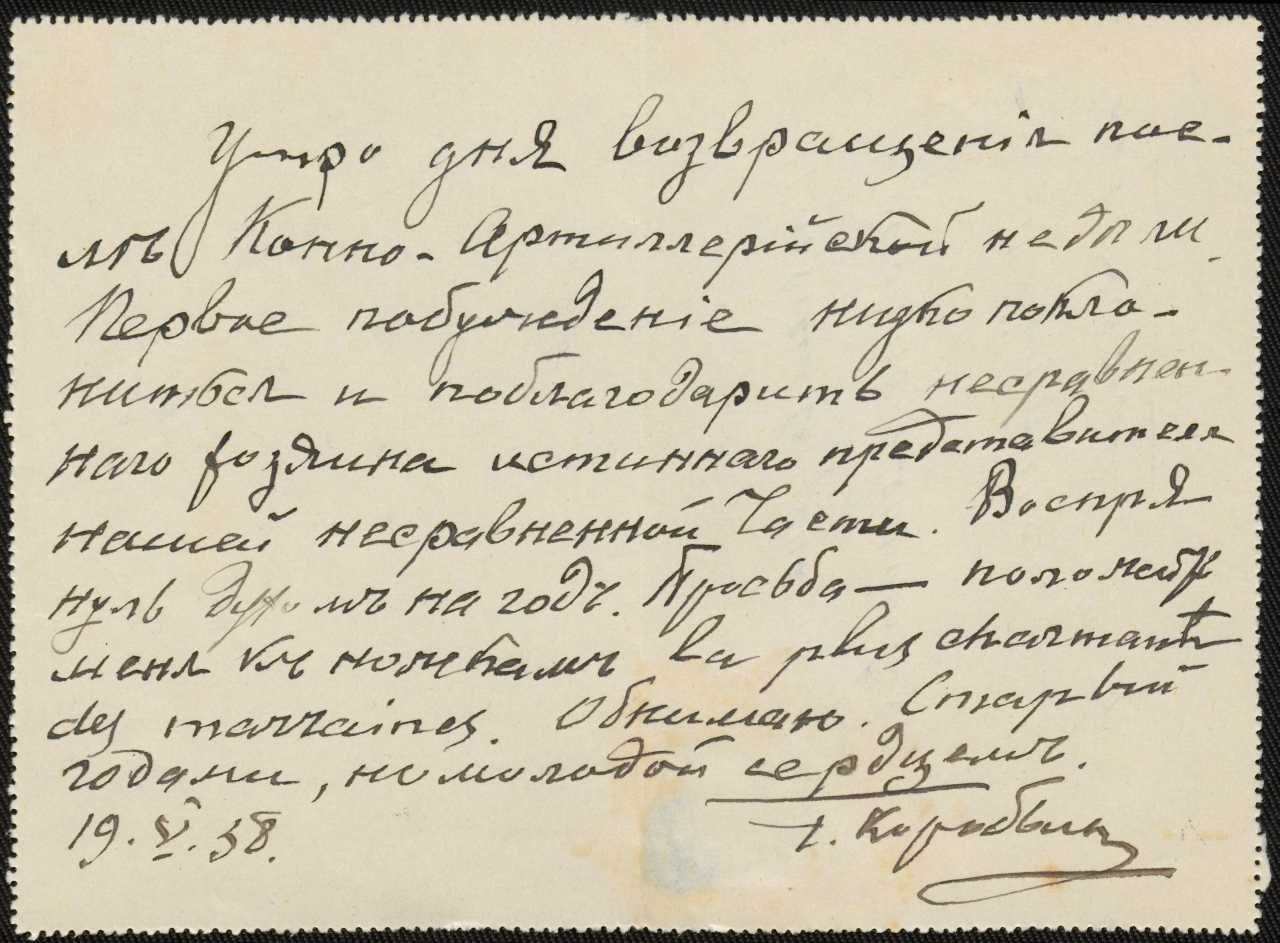 Утро дня возвращенія пос-
лѣ Конно-Артиллерійской недѣли.
Первое побужденіе низко покло-
ниться и поблагодарить несравнен-
наго хозяина истиннаго представителя
нашей несравненной Части. Воспря
нулъ духомъ на годъ. Просьба — положить
меня къ ножкамъ la plus charmante
des marraines. Обнимаю. Старый
годами, но молодой сердцемъ.
19. V. 38.